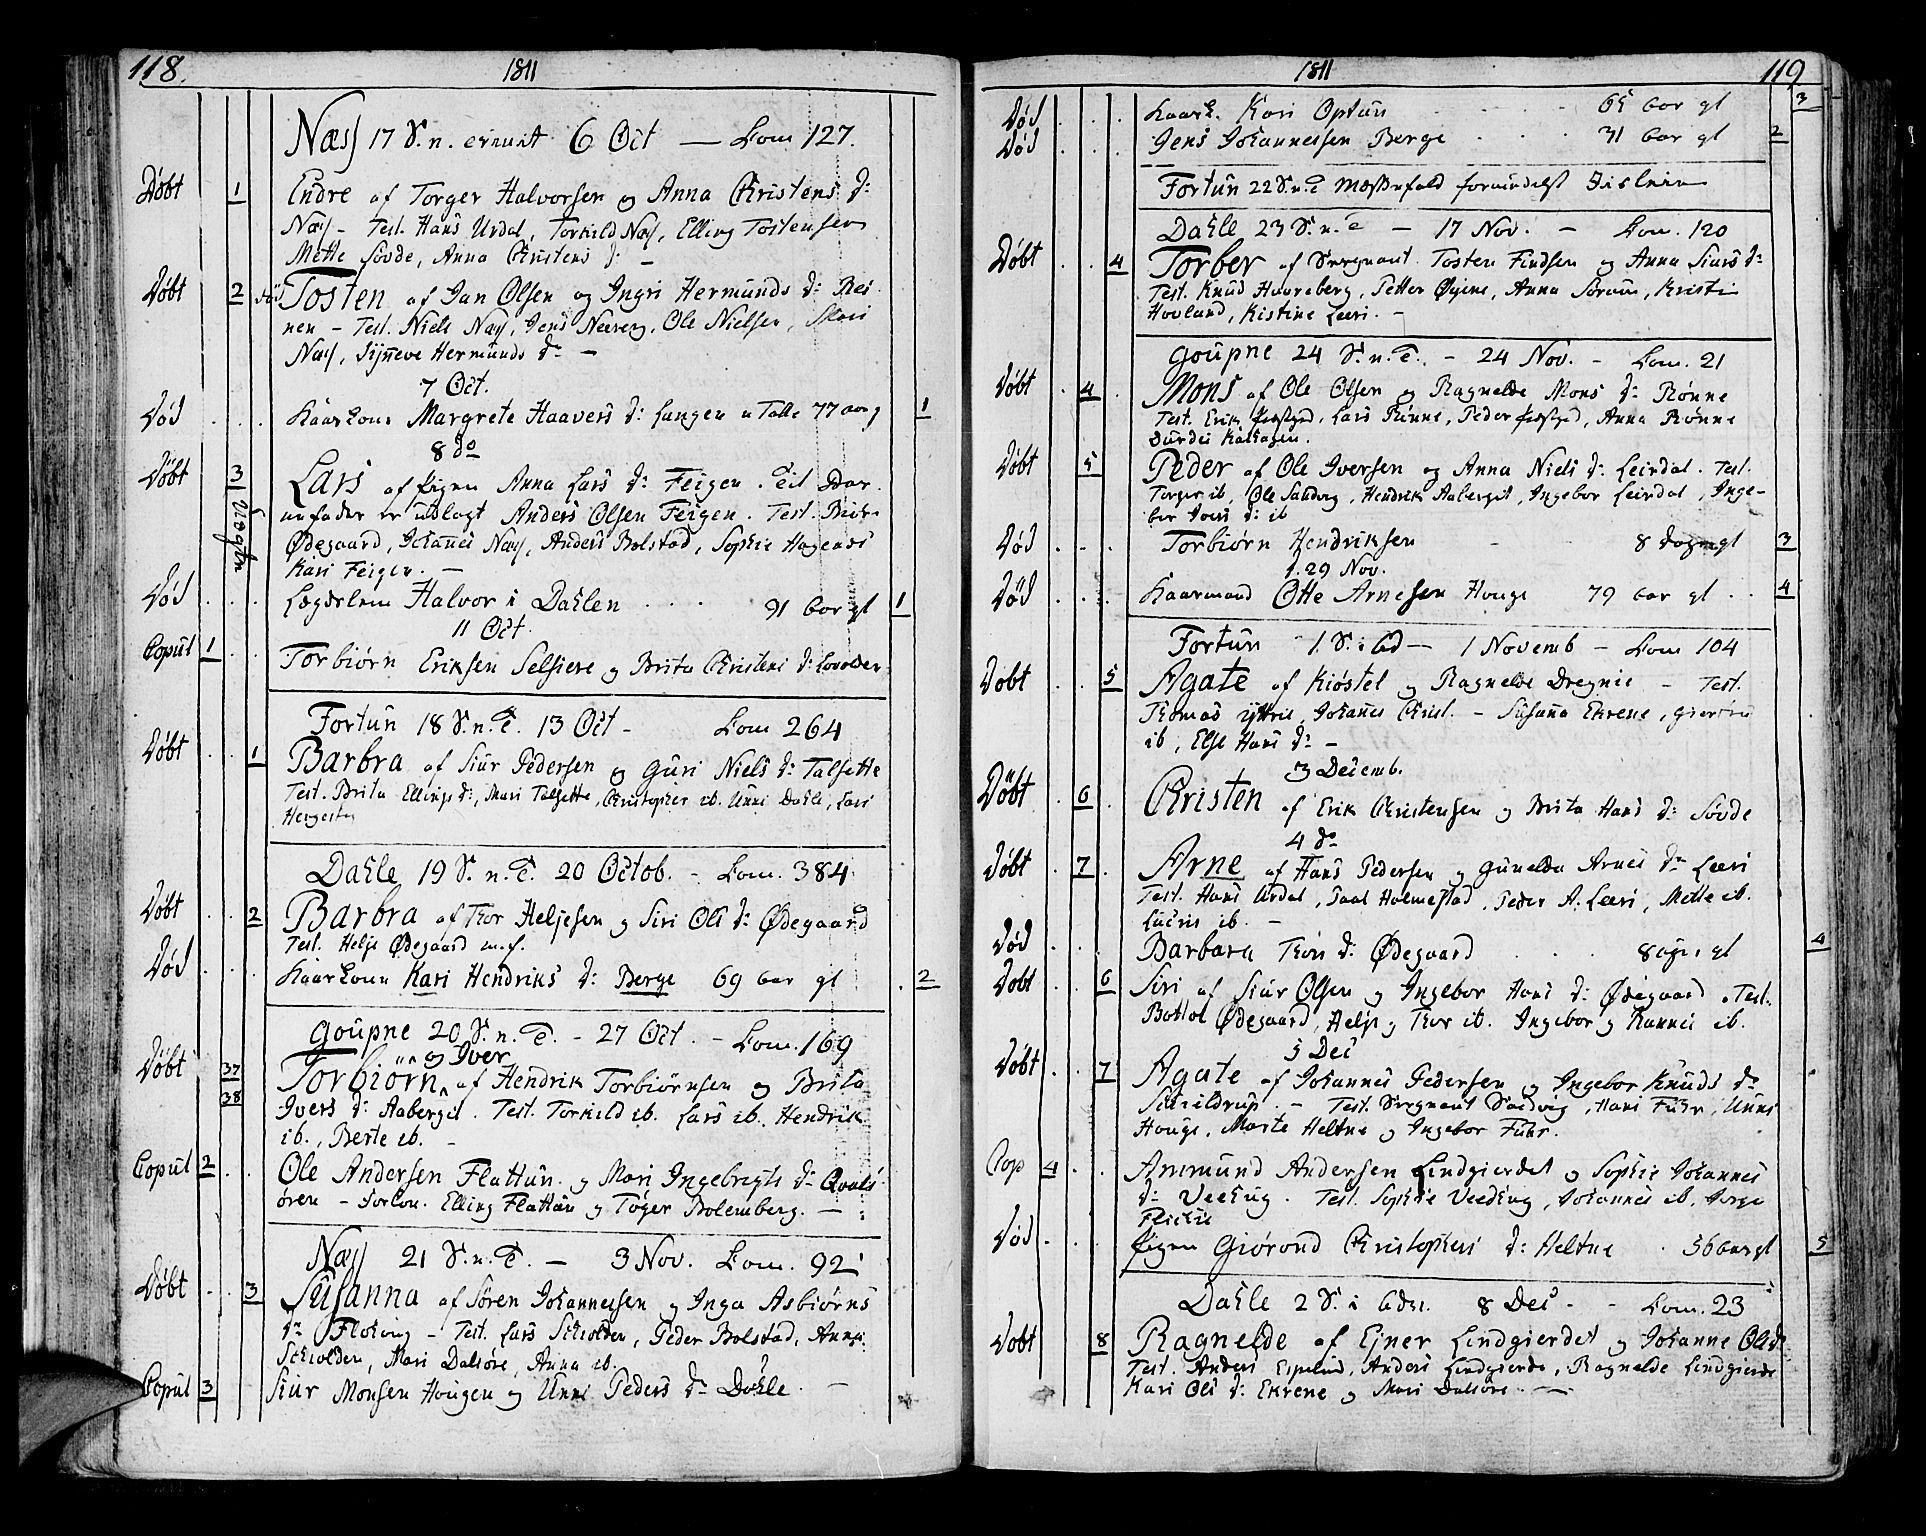 118.
1811
Næss 17 S. n. 6 Oct — Com 127.
Døbt 1 Endre af Torger Halvorsen og Anna Christens d:
Næss – Test. Hans Urdal, Torkild Næss, Elling Tostensen
Mette Søvde, Anna Christens d: –
Døbt 2 Tosten af Jan Olsen og Ingri Hermunds d:
nen – Test. Niels Næss, Jens, Ole Nielsen, Mari
Næss, Synneve Hermunds d: –
7 Oct.
Død Kaarkone Margrete Haavers d: Langen 77 aar g 1
8 do
Døbt 3 Lars af Pigen Anna Lars d: Feigen. Til Bar
nefader er udlagt Anders Olsen Feigen. Test.
Uægte
Ødegaard, Johannes Næss, Anders Bolstad, Sophie
Kari Feigen. –
Død Lægdslem Halvor i Dahlen 91 aar gl 1
11 Oct.
Copul 1 Torbiørn Eriksen Selsiere og Brita Christens d:
Fortun 18 S. n. T. 13 Oct – Com 264
Døbt 1 Barbra af Siur Pedersen og Guri Niels d: Talsette
Test. Brita Ellings d:, Mari Talsette, Christopher ib. Unni Dahle, Lars
Dahle 19 S. n. T. 20 Octob. – Com. 384
Døbt 2 Barbra af Thor Heljesen og Siri Ols d: Ødegaard
Test. Helje Ødegaard m. f.
Død Kaarkone Kari Hendriks d: Berge 69 aar gl 2
Goupne 20 S. n. T. – 27 Oct. – Com. 169
og Iver
Døbt 37 Torbiørn af Hendrik Torbiørnsen og Brita
38 Ivers d: Aaberge. Test. Torkild ib. Lars ib. Hendrik
ib., Berte ib. –
Copul 2 Ole Andersen Flattun og Mari Ingebrigts d: Qvals
øren – Forlov. Elling Flattun og Tøger Bolemberg. –
Næss 21 S. n. T. – 3 Nov. Com. 92
Døbt 3 Susanna af Søren Johannessen og Inga Asbiørns
d: – Test. Lars Skiolden, Peder Bolstad, Anna
Skiolden, Mari Dalsøre, Anna ib.
Copul 3 Siur Monsen Hougen og Unni Peders d: Dahle. –
1811
119
Død Kaark. Kari Optun 65 aar gl 3
Død Jens Johannessen Berge 31 aar gl 2
Fortun 22 S. n. T Messefald
Dahle 23 S. n. T – 17 Nov. – Com. 120
Døbt 4 Torber af Sergeant Tosten Findsen og Anna Siurs d:
Test. Knud Haureberg, Petter Øyene, Anna Sørum, Kristi
Hovland, Kistine Leeri. –
Goupne 24 S. n. T. – 24 Nov. – Com. 21
Døbt 4 Mons af Ole Olsen og Ragnelde Mons d: Rønne
Test. Erik, Lars Rønne, Peder, Anna Rønne
Døbt 5 Peder af Ole Iversen og Anna Niels d: Leirdal. Test.
Torger ib, Ole Sandvig, Hendrik Aaberget, Ingebor Leirdal, Inge-
bor d: ib
Død Torbiørn Hendriksen 8 dage gl 3
29 Nov.
Død Kaarmand Otte Arnesen Houge 79 aar gl 4
Fortun 1 S. i Ad – 1 Novemb – Com 104
Døbt 5 Agate af Kiøstel og Ragnelde Dregnie – Test.
Thomas, Johannes Christ. – Susanna Ekrene,
ib, Else Hans d: –
3 Decemb.
Døbt 6 Christen af Erik Christensen og Brita Hans d: Søvde
4 do
Døbt 7 Arne af Hans Pedersen og Gunelda Arnes d: Leeri
Test. Hans Urdal, Paal Holmestad, Peder A. Leeri, Mette ib.
ib. –
Død Barbara Thors d: Ødegaard 8 gl 4
Døbt 6 Siri af Siur Olsen og Ingebor Hans d: Ødegaard. Test.
Botlol Ødegaard, Helje og Thor ib. Ingebor og ib.
5 Dec
Døbt 7 Agate af Johannes Pedersen og Ingebor Knuds d:
– Test. Sergeant, Mari Fuhr, Unni
Houge, Marte Heltne og Ingebor Fuhr.
Cop 4 Ammund Andersen Lindgierdet og Sophie Johannes
d: Test. Sophie, Johannes ib.
Død Pigen Giørond Christophers d: Heltne 56 aar gl 5
Dahle 2 S. i Adv. 8 Dec – Com. 23
Døbt 8 Ragnelde af Ejner Lindgierdet og Johanne Ols d:
Test. Anders, Anders Lindgierde, Ragnelde Lindgierde
Kari Ols d: Ekrene og Mari Dalsøre. –